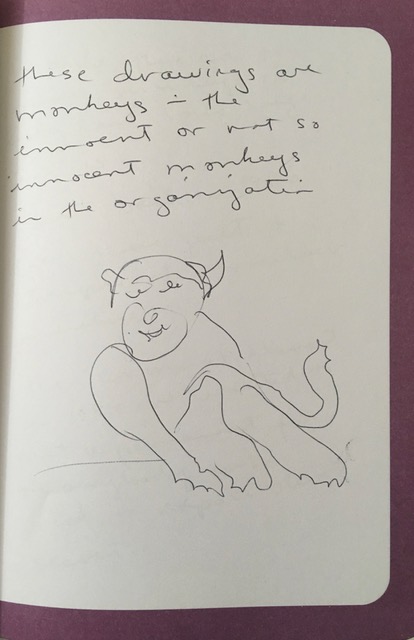 these drawings are
monkeys - the
innocent or not so
innocent monkeys
in the organization